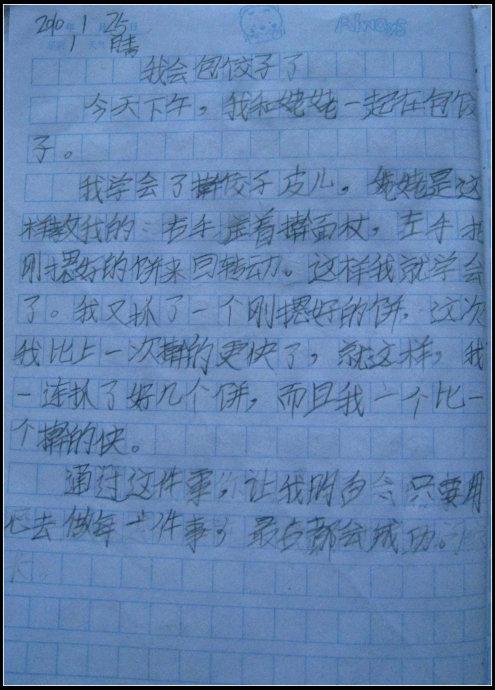 2010年1月25日
星期1 天气晴
Always
我会包饺子了
今天下午，我和姥姥一起在包饺
子。
我学会了擀饺子皮儿。姥姥是这
样教我的：右手拿着擀面杖，左手把
刚摁好的饼来回转动。这样我就学会
了。我又抓了一个刚摁好的饼，这次
我比上一次擀的更快了，就这样，我
一连扒了好几个饼，而且我一个比一
个擀的快。
通过这件事，让我明白会只要用
心去做每一件事，最后都会成功。